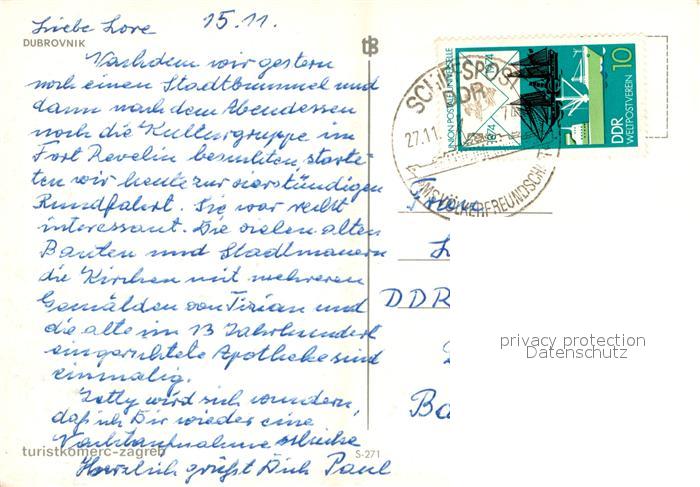 Liebe Lore 15.11.
DUBROVNIK
Nachdem wir gestern
noch einen Stadtbummel und
dann nach dem Abendessen
noch die Kulturgruppe im
Fort Revelin besuchten starte-
ten wir heute zur vierstündigen
Rundfahrt. Sie war recht
interessant. Die vielen alten
Bauten und Stadtmauern
die Kirchen mit mehreren
Gemälden von Tizian und
die alte im 13 Jahrhundert
eingerichtete Apotheke sind
einmalig.
wird sich wundern,
daß ich Dir wieder eine
Nachtaufnahme schicke
Herzlich grüßt Dich Paul
turistkomerc-zagreb
S-271
tB
UNION POSTALE UNIVERSELLE
1874 1974
10
DDR
WELTPOSTVEREIN
SCHIFFSPOST
DDR
27.11.
MS VÖLKERFREUNDSCHAFT
Frau
L
DDR
Ba
privacy protection
Datenschutz